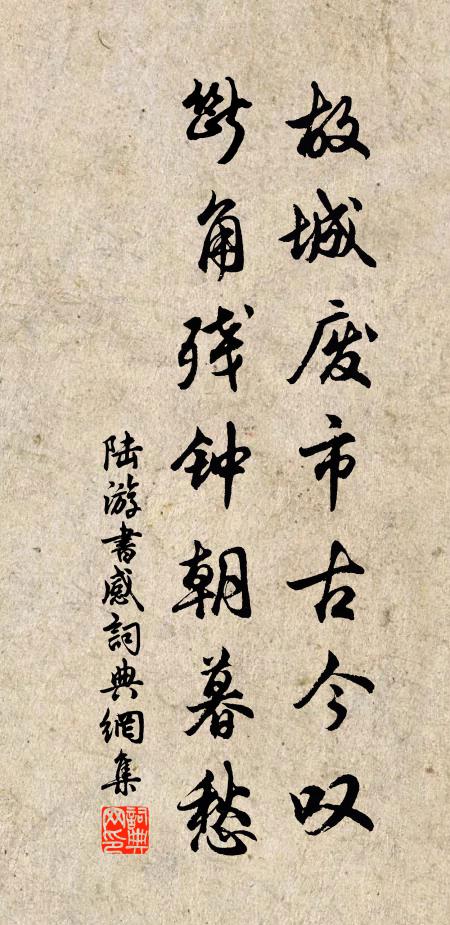 故城废市古今叹
断角残钟朝暮愁
陆游书感詞典網集
詞典网印